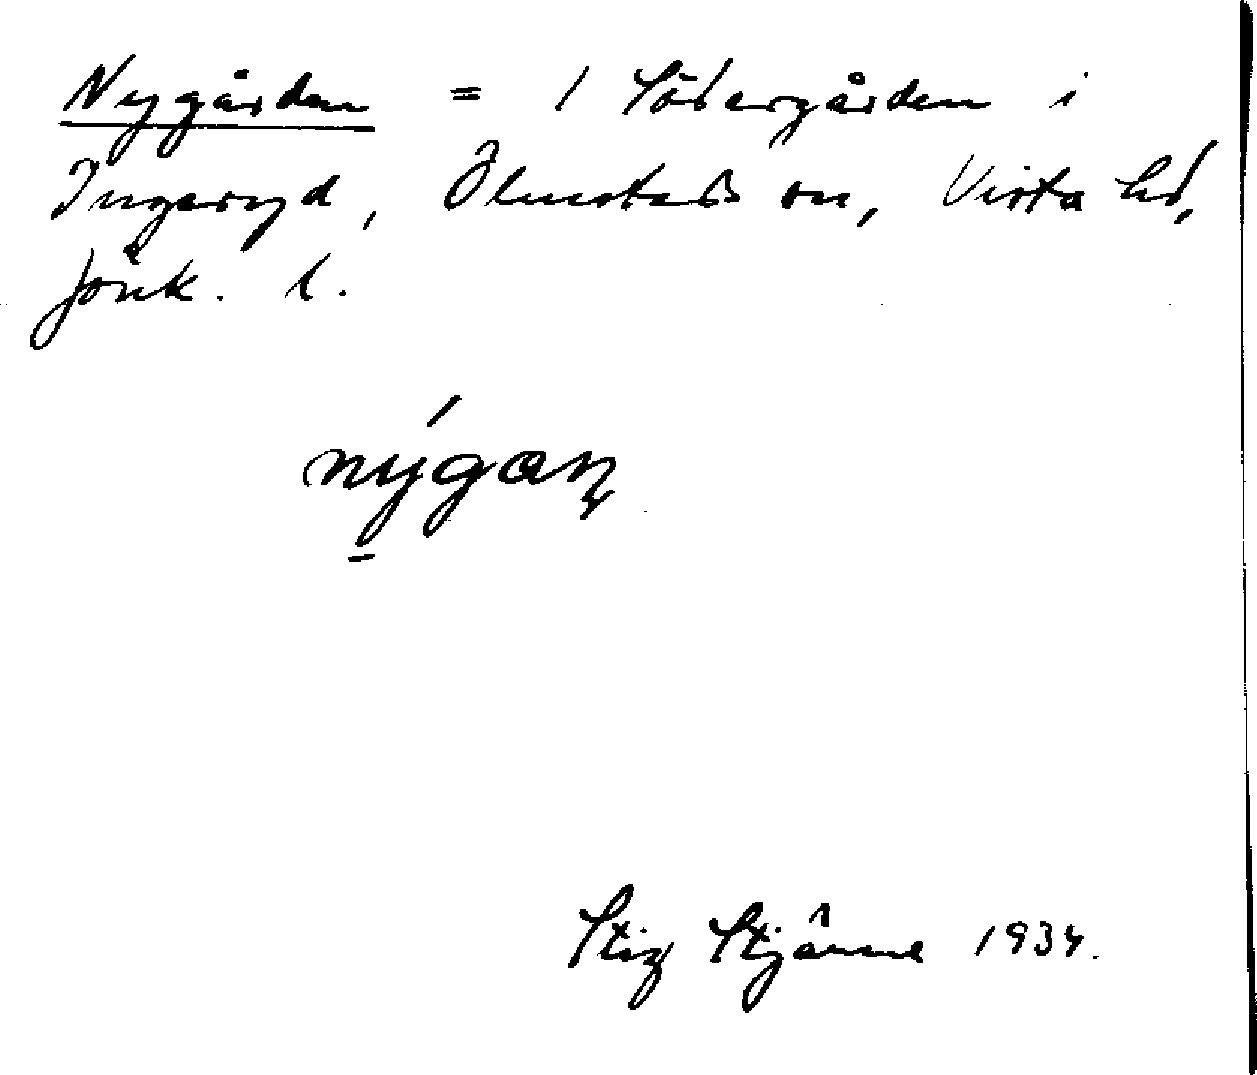 Nygården = 1 Södergården i
Ingaryd, Ölmstads sn, Vista hd,
Jönk. l.
nýgaɳ
Stig Stjärne 1934.